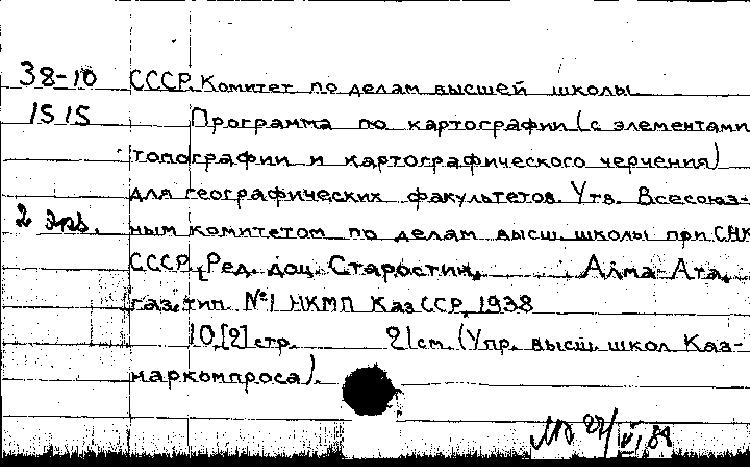 38-10 СССР. Комитет по делам высшей школы
1515 Программа по картографии (с элементами
топографии и картографического черчения)
для географических факультетов. Утв. Всесоюз-
2 экз. ным комитетом по делам высш. школы при СНК
СССР. [Ред. доц. Старостин. Алма-Ата,
газ. тип. №1 НКМП КазССР, 1938
10,[2] стр. 21 см. (Упр. высш. школ Каз-
наркомпроса).